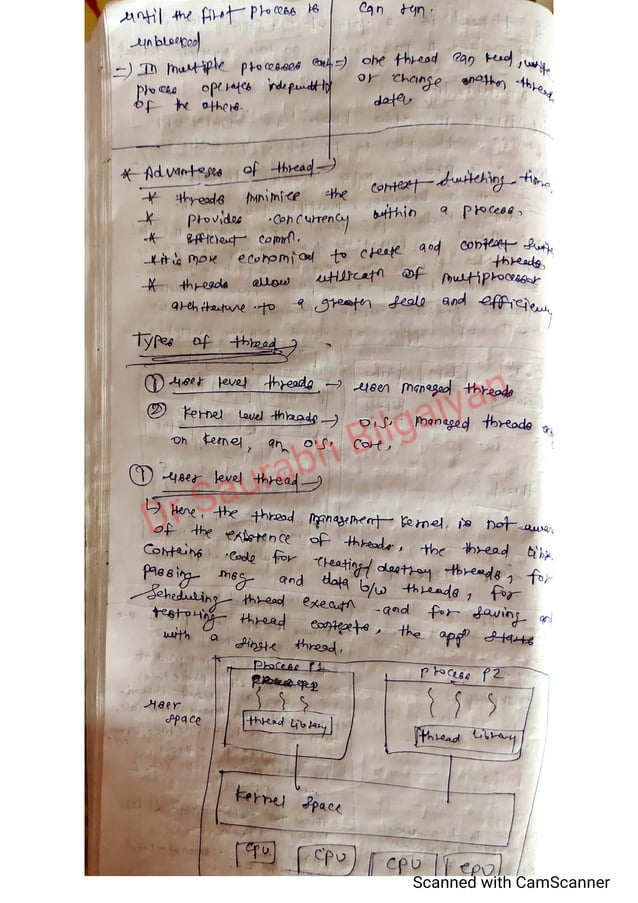 until the first process is
unblocked
=) In multiple processes each
process operates independently
of the others.
can run.
=) one thread can read, write
or change another thread
data.
* Advantages of thread
* threads minimize the context switching time.
* provides concurrency within a process.
* efficient commn.
* it is more economical to create and context switch
threads
* threads allow utilizatn of multiprocessor
architecture to a greater scale and efficiency
Types of thread
① user level threads → user managed threads
② Kernel Level threads → O.S. managed threads
on kernel, an O.S. core.
① user level thread
↳ Here, the thread management kernel is not aware
of the existence of threads, the thread
contains code for creating/destroy threads, for
passing msg and data b/w threads, for
scheduling thread executn and for saving and
restoring thread contexts, the appn starts
with a single thread.
Process P1
Process P2
user
space
thread Library
thread Library
Kernel Space
CPU CPU CPU CPU
Dr Saurabh Bilgaiyan
Scanned with CamScanner